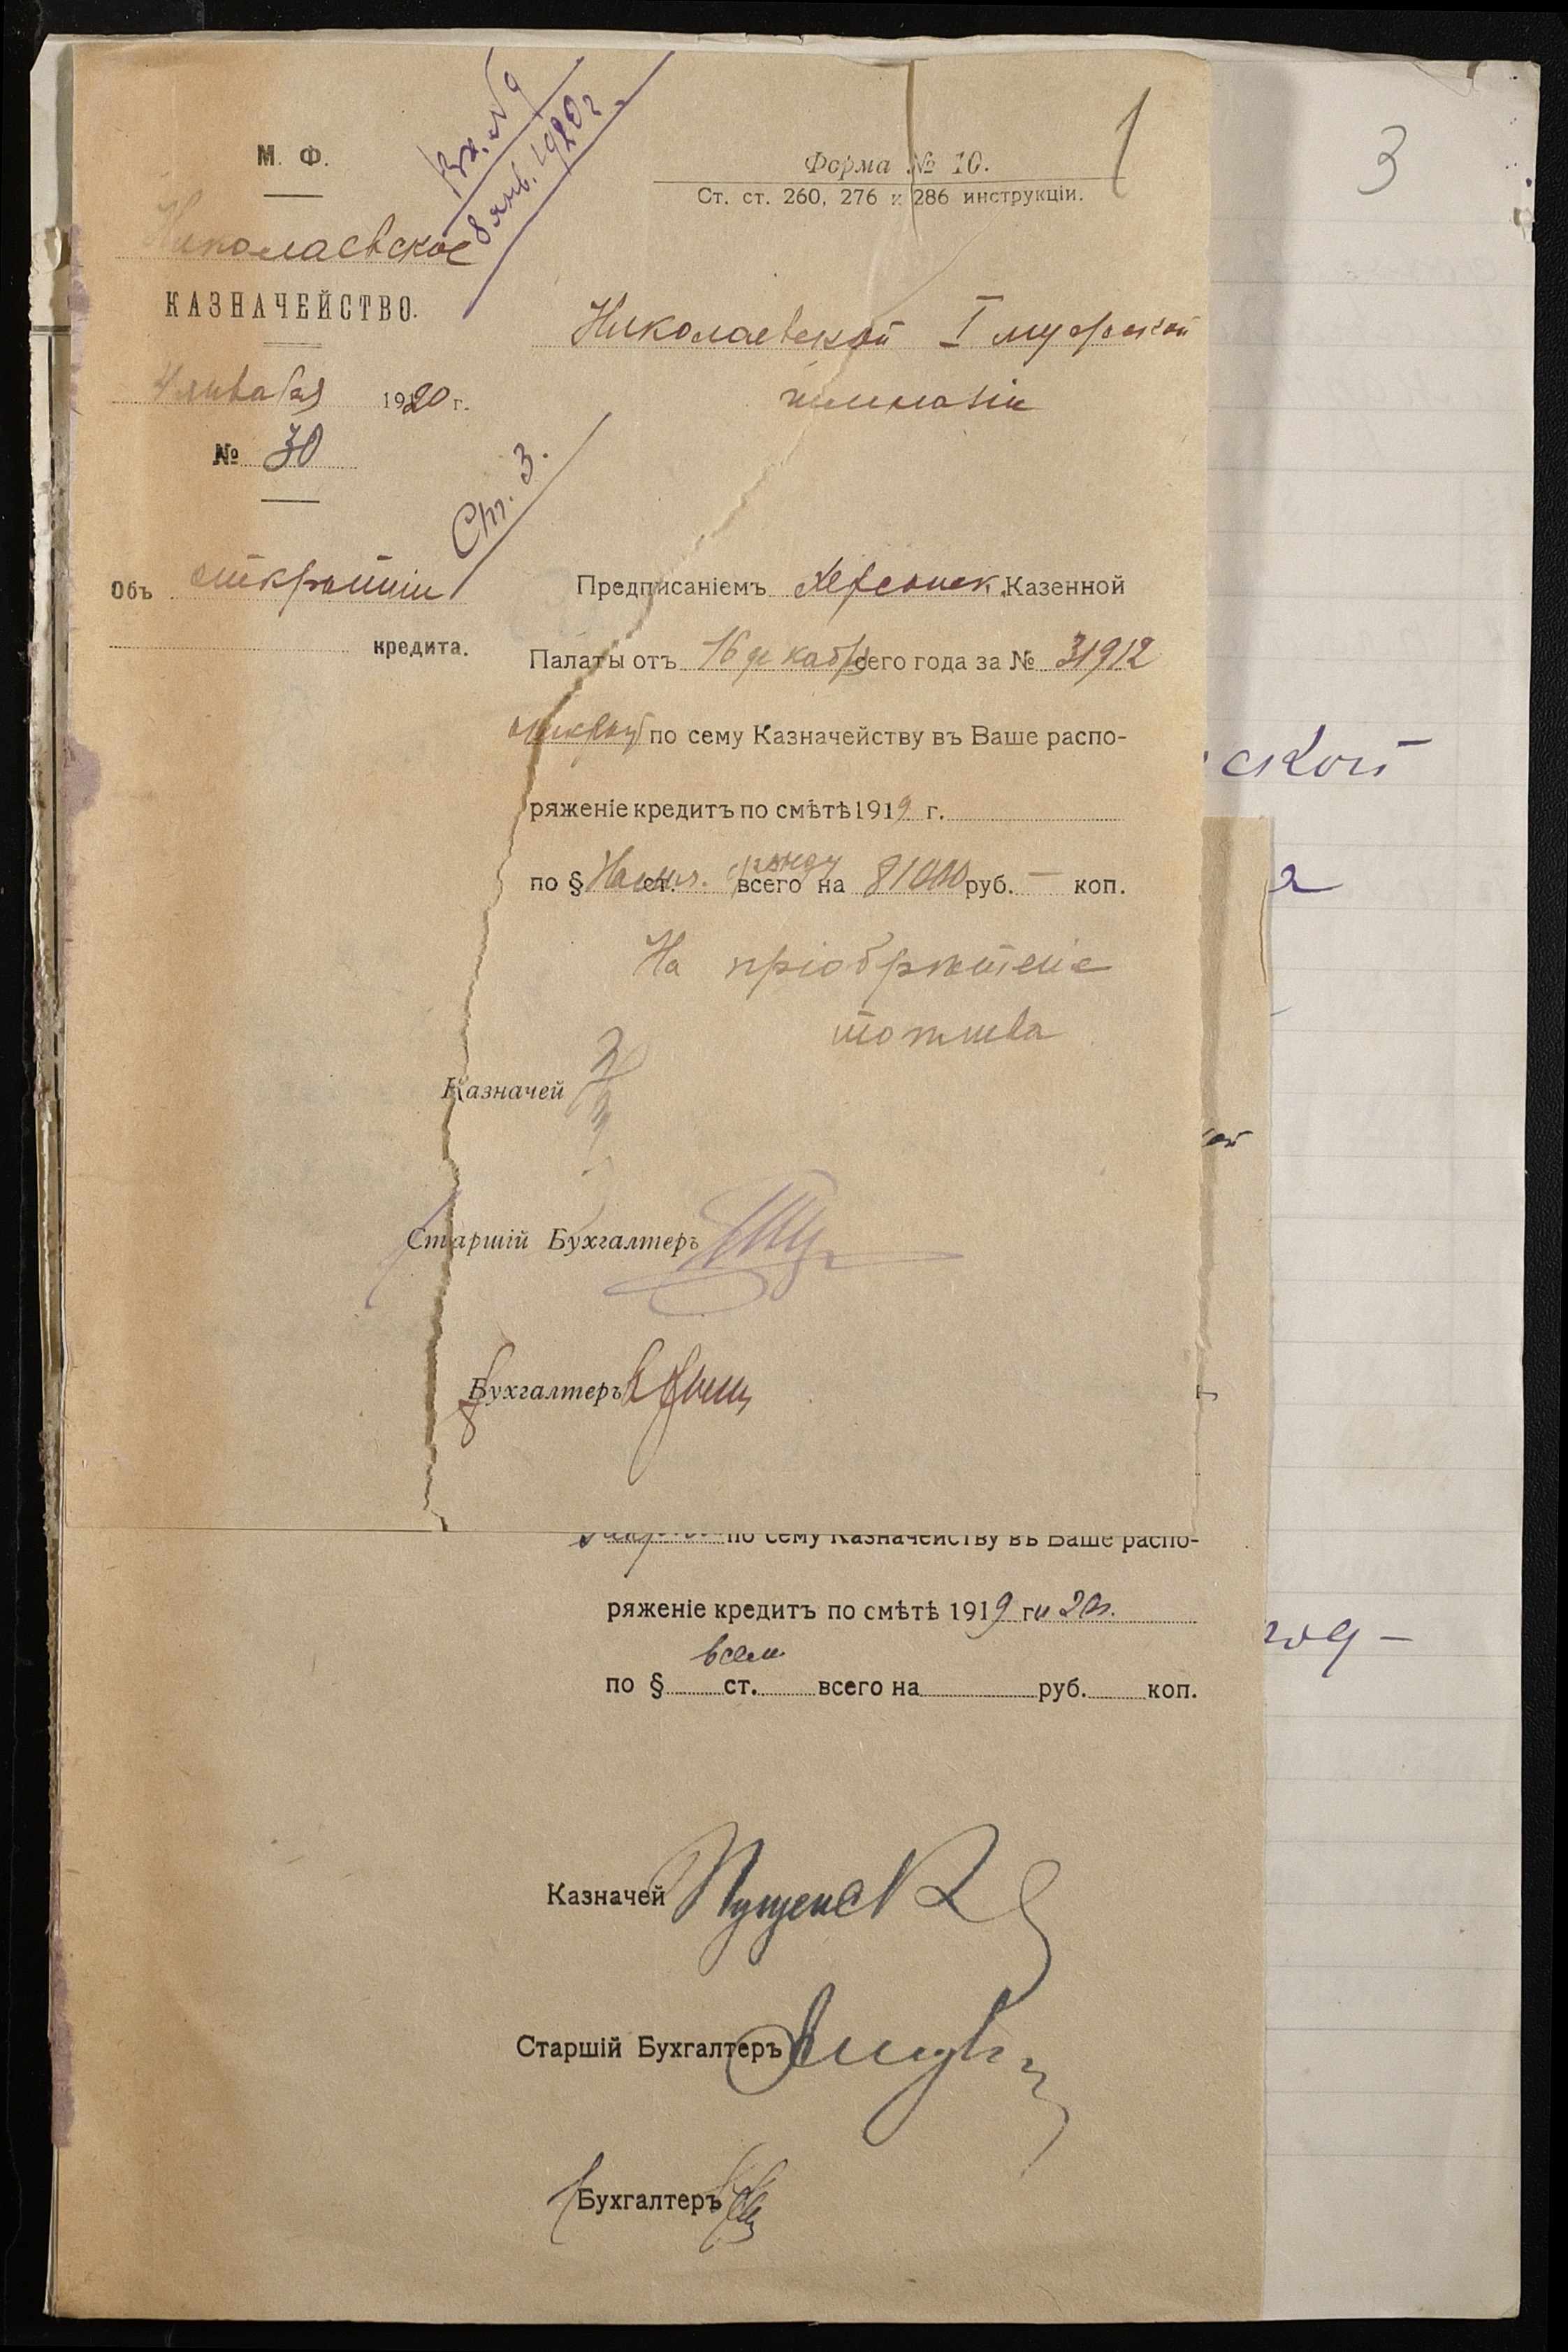 Вх. № 9
8 янв. 1920 г.
1
М. Ф.
Николаевское
КАЗНАЧЕЙСТВО.
4 января 1920 г.
№ 30
Ст. 3.
Объ открытіи
кредита.
Форма № 10.
Ст. ст. 260, 276 и 286 инструкціи.
Николаевской I мужской
гимназіи
Предписаніемъ Херсонск. Казенной
Палаты отъ 16 декабр сего года за № 31912
открыт по сему Казначейству въ Ваше распо-
ряженіе кредитъ по смѣтѣ 1919 г.
фонду
по § ст. всего на 81000 руб. — коп.
На пріобрѣтеніе
топлива
Казначей
Старшій Бухгалтеръ
Бухгалтеръ
по сему Казначейству въ Ваше распо-
ряженіе кредитъ по смѣтѣ 1919 г и 20 г.
по § ст. всего на руб. коп.
Казначей
Старшій Бухгалтеръ
Бухгалтеръ
3
ской